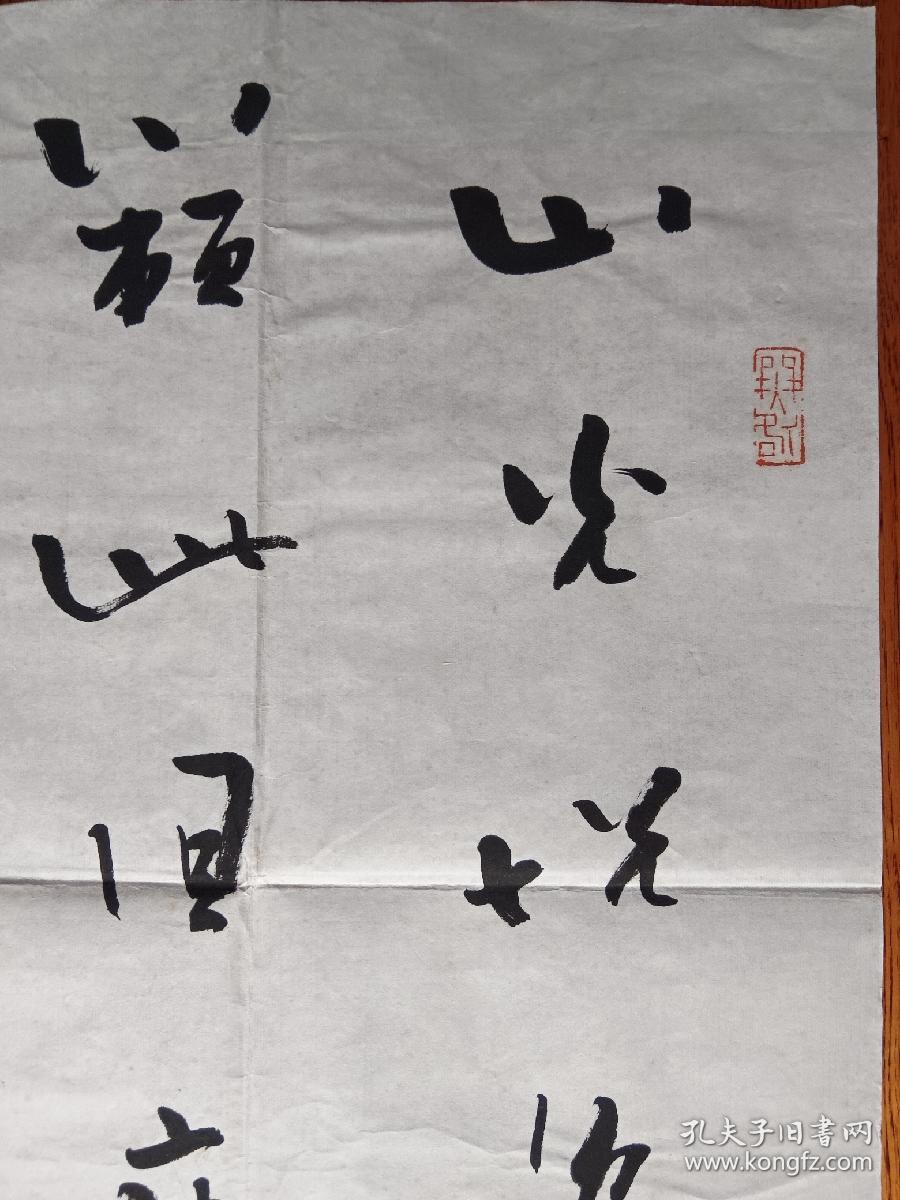 山光悦
籁此俱
孔夫子旧書网
www.kongfz.com